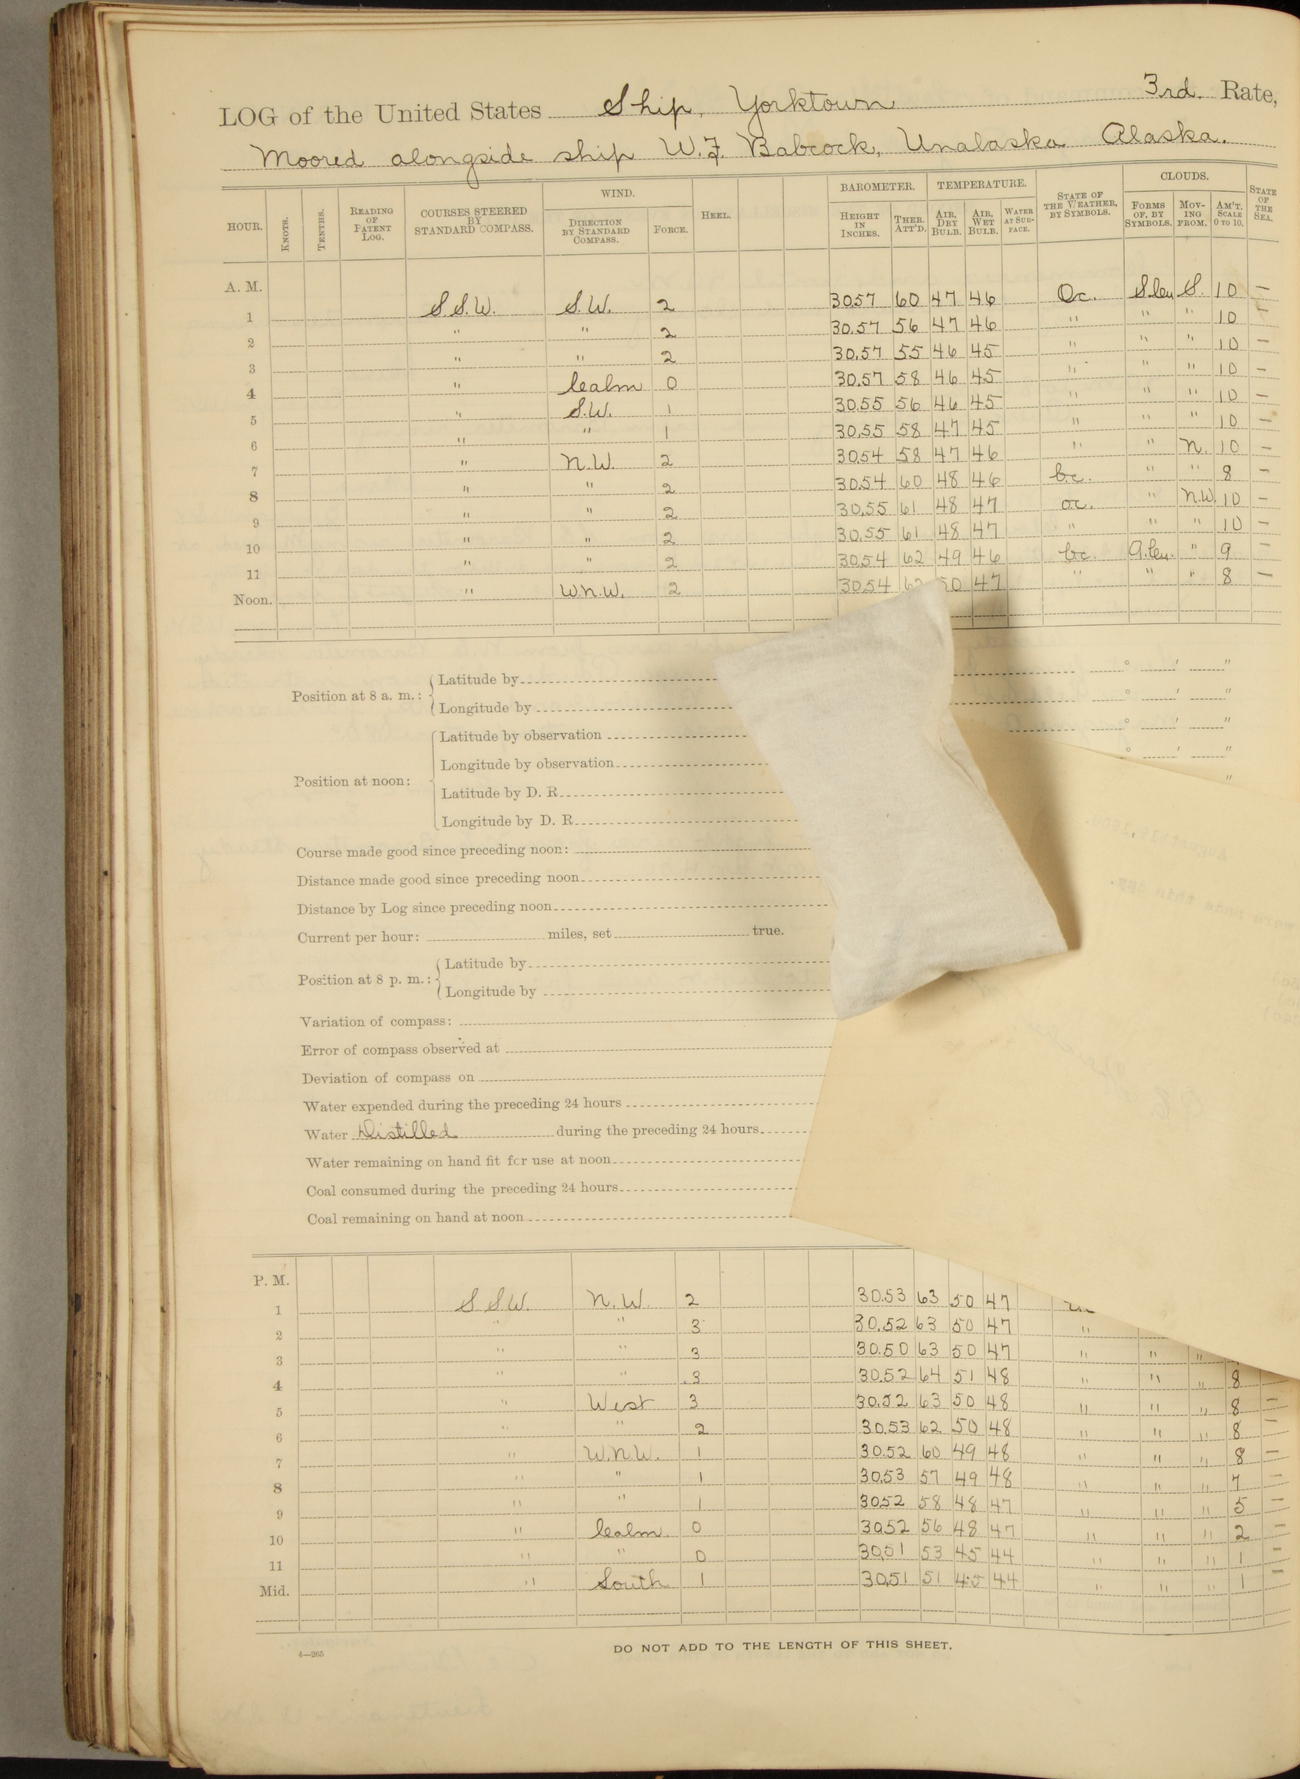 LOG of the United States Ship, Yorktown 3rd. Rate,
Moored alongside ship W.F. Babcock, Unalaska Alaska.
HOUR. KNOTS. TENTHS. READING OF PATENT LOG. COURSES STEERED BY STANDARD COMPASS. WIND. DIRECTION BY STANDARD COMPASS. FORCE. HEEL. BAROMETER. HEIGHT IN INCHES. THER. ATT'D. TEMPERATURE. AIR, DRY BULB. AIR, WET BULB. WATER AT SURFACE. STATE OF THE WEATHER, BY SYMBOLS. CLOUDS. FORMS OF, BY SYMBOLS. MOVING FROM. AM'T. SCALE 0 TO 10. STATE OF THE SEA.
A. M.
1 S.S.W. S.W. 2 30.57 60 47 46 Oc. S.Cu S. 10 —
2 " " 2 30.57 56 47 46 " " " 10
3 " " 2 30.57 55 46 45 " " " 10 —
4 " Calm 0 30.57 58 46 45 " " " 10 —
5 " S.W. 1 30.55 56 46 45 " " " 10 —
6 " " 1 30.55 58 47 45 " " " 10 —
7 " N.W. 2 30.54 58 47 46 " " N. 10 —
8 " " 2 30.54 60 48 46 b.c. " " 8 —
9 " " 2 30.55 61 48 47 oc. " N.W. 10 —
10 " " 2 30.55 61 48 47 " " " 10 —
11 " " 2 30.54 62 49 46 b.c. A.Cu. " 9 —
Noon. " W.N.W. 2 30.54 62 50 47 " " " 8 —
Position at 8 a. m.: Latitude by ° ′ ″
Longitude by ° ′ ″
Position at noon: Latitude by observation ° ′ ″
Longitude by observation ° ′ ″
Latitude by D. R. ″
Longitude by D. R.
Course made good since preceding noon:
Distance made good since preceding noon
Distance by Log since preceding noon
Current per hour: miles, set true.
Position at 8 p. m.: Latitude by
Longitude by
Variation of compass:
Error of compass observed at
Deviation of compass on
Water expended during the preceding 24 hours
Water Distilled during the preceding 24 hours
Water remaining on hand fit for use at noon
Coal consumed during the preceding 24 hours
Coal remaining on hand at noon
P. M.
1 S S.W. N.W. 2 30.53 63 50 47
2 " " 3 30.52 63 50 47 "
3 " " 3 30.50 63 50 47 " " "
4 " " 3 30.52 64 51 48 " " " 8
5 " West 3 30.52 63 50 48 " " " 8 —
6 " " 2 30.53 62 50 48 " " " 8 —
7 " W.N.W. 1 30.52 60 49 48 " " " 8 —
8 " " 1 30.53 57 49 48 " " " 7 —
9 " " 1 30.52 58 48 47 " " " 5 —
10 " Calm 0 30.52 56 48 47 " " " 2 —
11 " " 0 30.51 53 45 44 " " " 1 —
Mid. " South 1 30.51 51 45 44 " " " 1 —
DO NOT ADD TO THE LENGTH OF THIS SHEET.
4—265